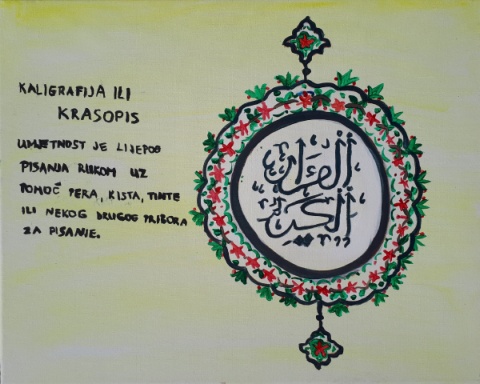 KALIGRAFIJA ILI
KRASOPIS
UMJETNOST JE LIJEPOG
PISANJA RUKOM UZ
POMOĆ PERA, KISTA, TINTE
ILI NEKOG DRUGOG PRIBORA
ZA PISANJE.
القرآن
الكريم